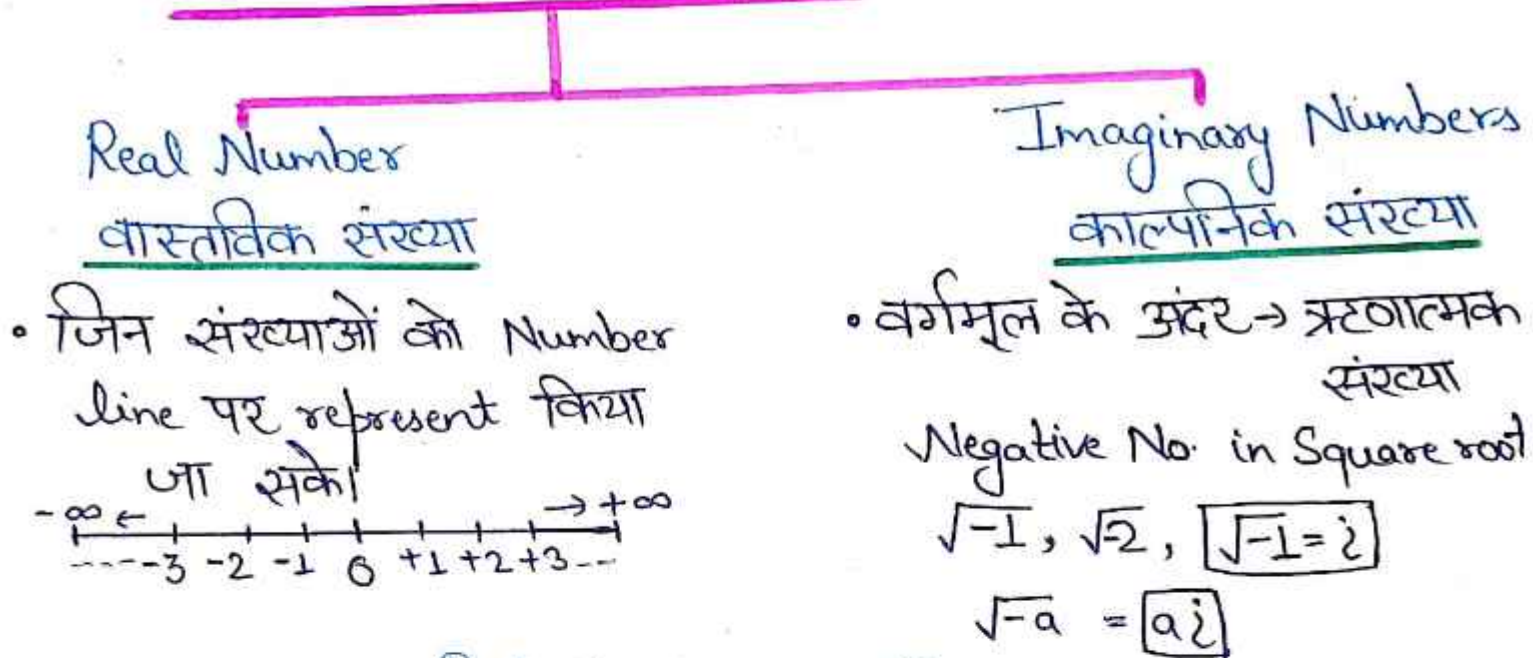 Real Number
वास्तविक संख्या
• जिन संख्याओं को Number
line पर represent किया
जा सके।
-∞ ← → +∞
-----3 -2 -1 0 +1 +2 +3---
Imaginary Numbers
काल्पनिक संख्या
• वर्गमूल के अंदर → ऋणात्मक
संख्या
Negative No. in Square root
√-1, √-2, √-1 = i
√-a = ai